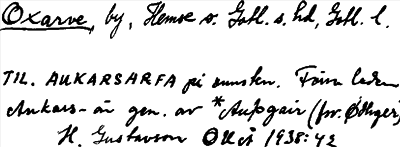 Oxarve, by, Hemse s. Gotl. s. hd, Gotl. l.
TIL. AUKARSARFA på runsten. Förra leden
Aukars- är gen. av *Auþgair (fvn. Øðger)
H. Gustavson OLLÅ 1938:42